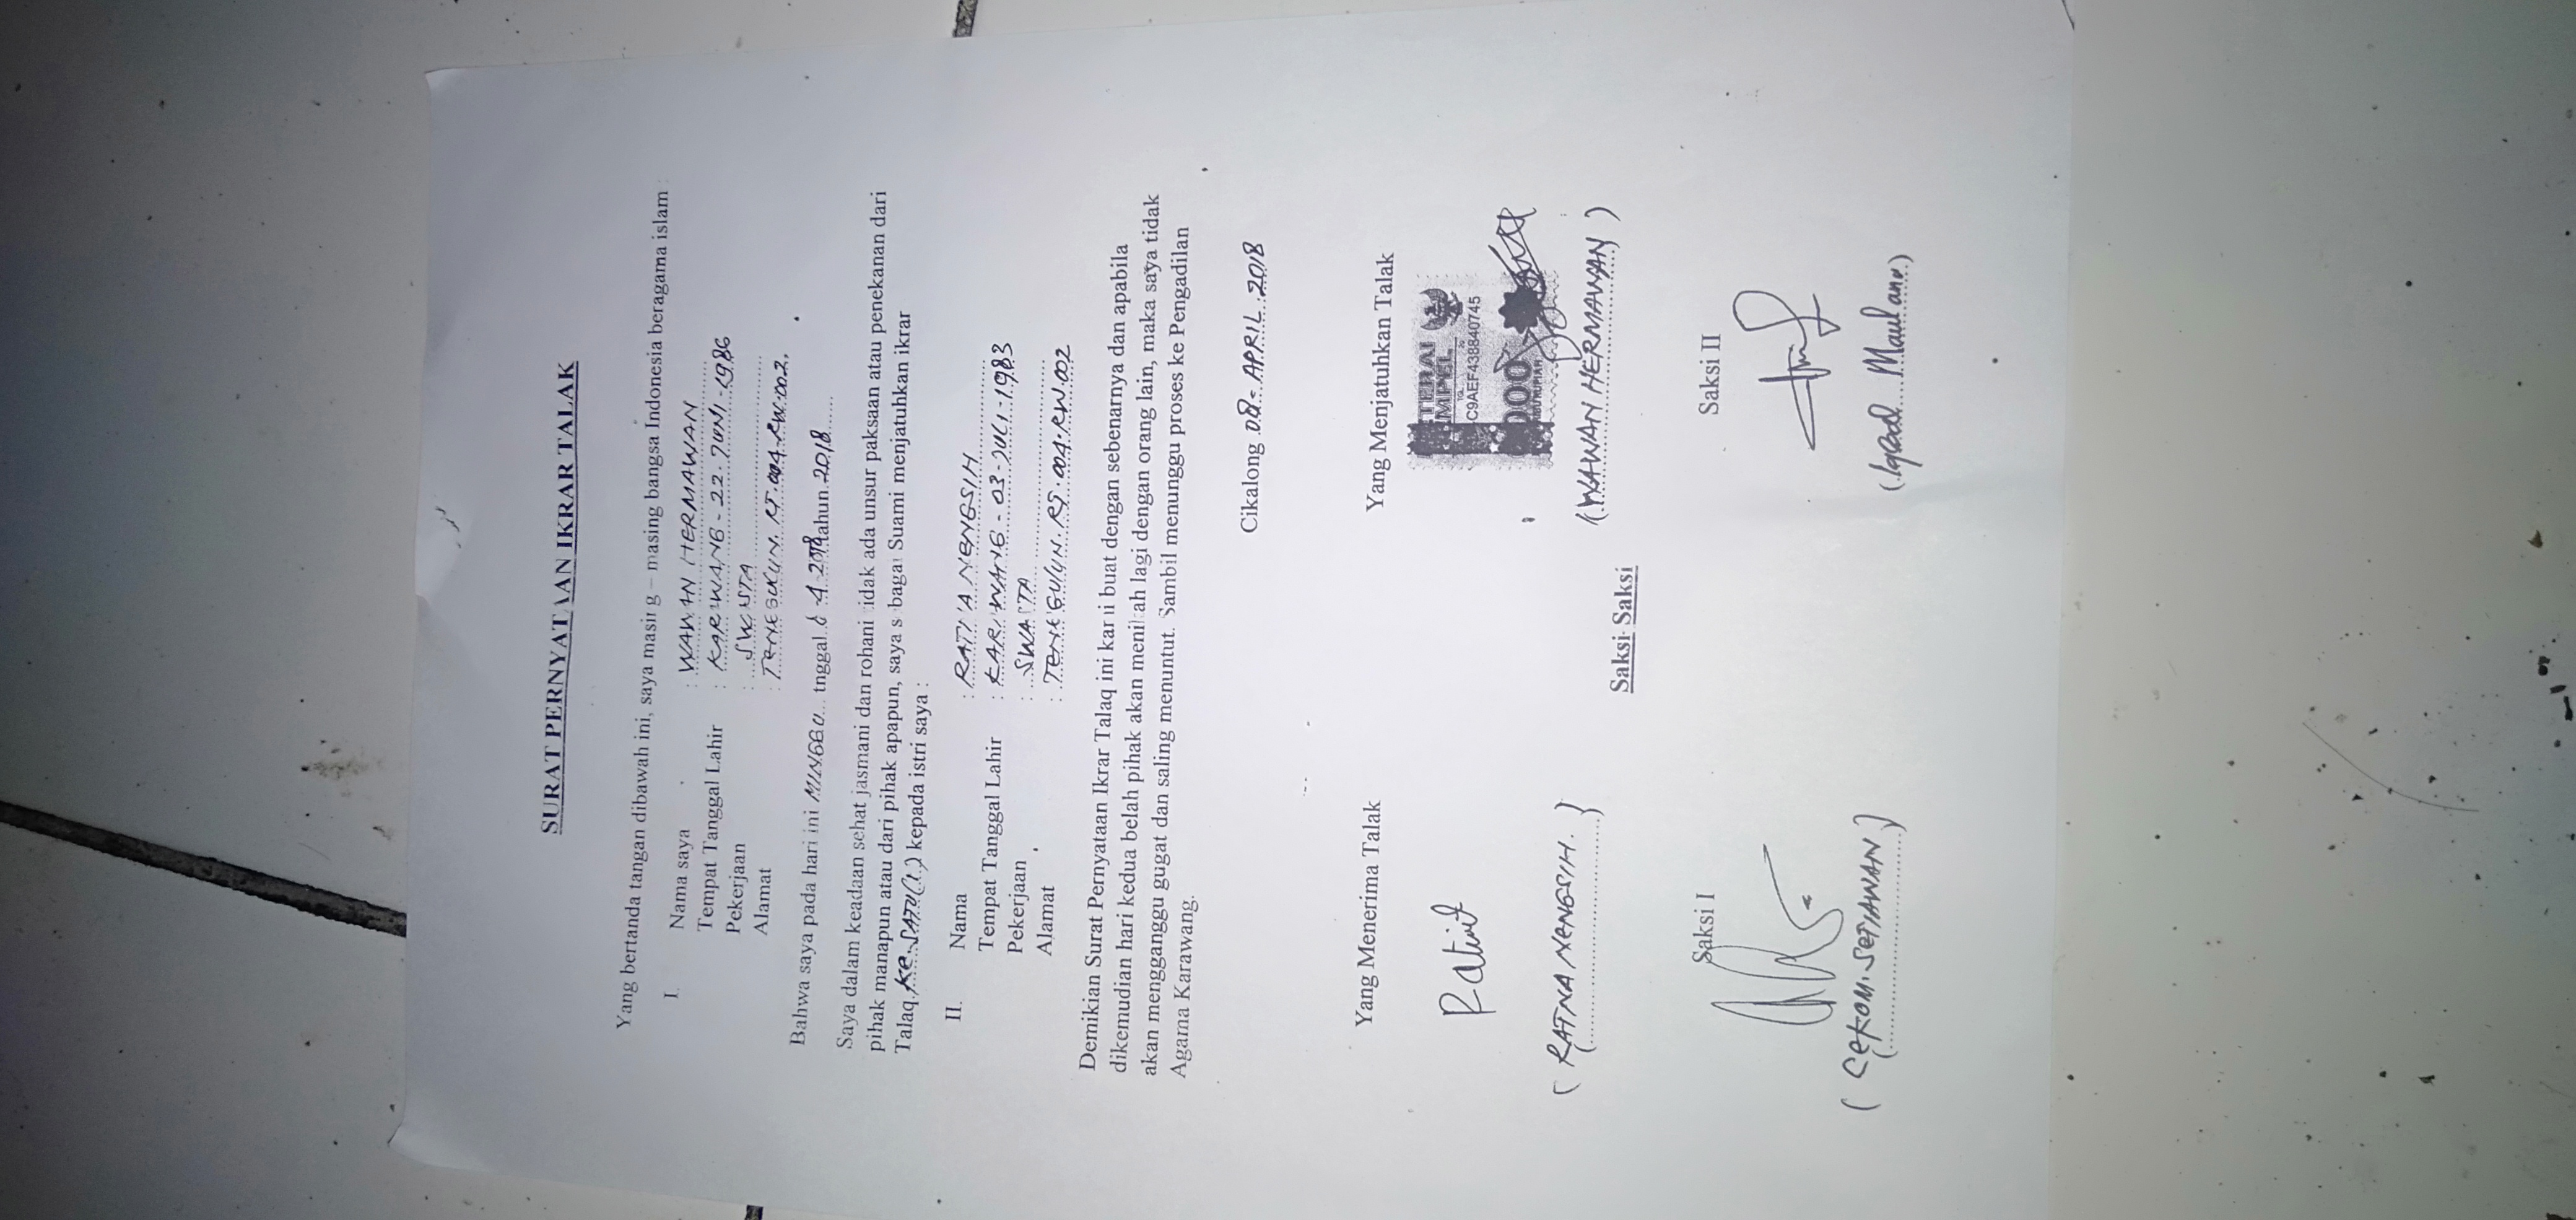 SURAT PERNYATAAN IKRAR TALAK
Yang bertanda tangan dibawah ini, saya masing – masing bangsa Indonesia beragama islam :
I. Nama saya : WAWAN HERMAWAN
Tempat Tanggal Lahir : KARAWANG - 22 - JUNI - 1986
Pekerjaan : SWASTA
Alamat : RT.004.RW.002.
Bahwa saya pada hari ini MINGGU tnggal 8 4 2018 tahun 2018
Saya dalam keadaan sehat jasmani dan rohani tidak ada unsur paksaan atau penekanan dari
pihak manapun atau dari pihak apapun, saya sebagai Suami menjatuhkan ikrar
Talaq Ke-SATU (1) kepada istri saya :
II. Nama : RATNA NENGSIH
Tempat Tanggal Lahir : KARAWANG - 03 - JULI - 1983
Pekerjaan : SWASTA
Alamat : RT.004.RW.002
Demikian Surat Pernyataan Ikrar Talaq ini kami buat dengan sebenarnya dan apabila
dikemudian hari kedua belah pihak akan menikah lagi dengan orang lain, maka saya tidak
akan mengganggu gugat dan saling menuntut. Sambil menunggu proses ke Pengadilan
Agama Karawang.
Cikalong 08 - APRIL 2018
Yang Menerima Talak Yang Menjatuhkan Talak
METERAI
TEMPEL
TGL
C9AEF438840745
6000
ENAM RIBU RUPIAH
(RATNA NENGSIH.) (WAWAN HERMAWAN)
Saksi-Saksi
Saksi I Saksi II
SETIAWAN) (Iqbal Maulana)